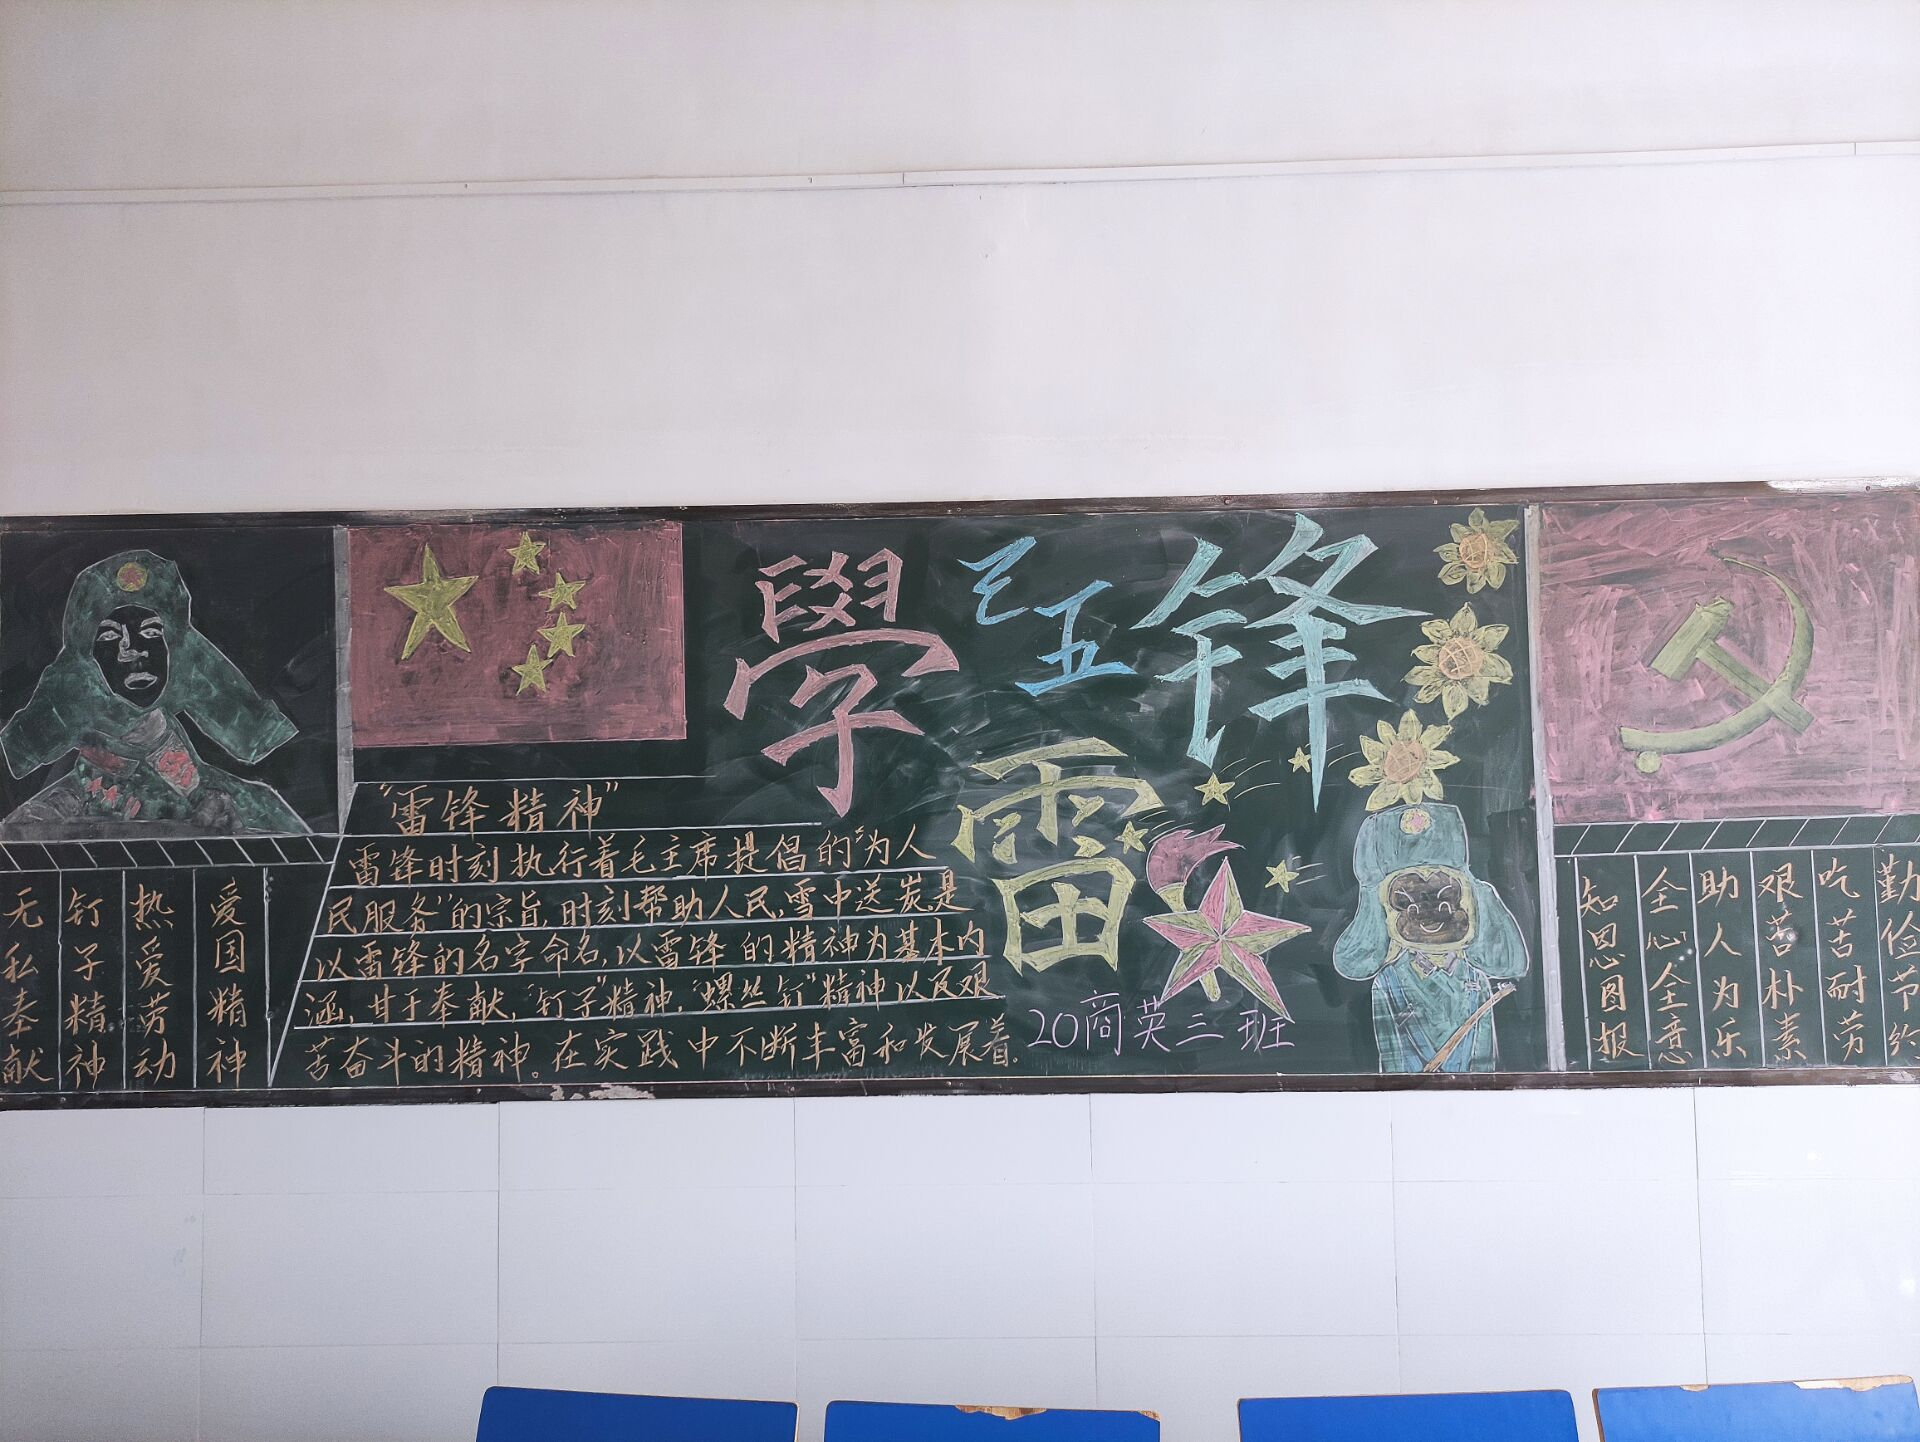 學
三
五
锋
雷
20商英三班
“雷锋精神”
雷锋时刻执行着毛主席提倡的“为人
民服务”的宗旨,时刻帮助人民,雪中送炭,是
以雷锋的名字命名,以雷锋的精神为基本内
涵,甘于奉献,“钉子”精神,“螺丝钉”精神以及艰
苦奋斗的精神。在实践中不断丰富和发展着.
无私奉献
钉子精神
热爱劳动
爱国精神
知恩图报
全心全意
助人为乐
艰苦朴素
吃苦耐劳
勤俭节约